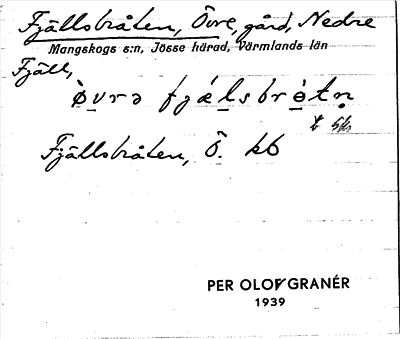 Fjällsbråten, Övre, gård, Nedre
Mangskogs s:n, Jösse härad, Värmlands län
Fjäll,
fjælsbrètṇ
Fjällsbråten, Ö. kb
PER OLOF GRANÉR
1939